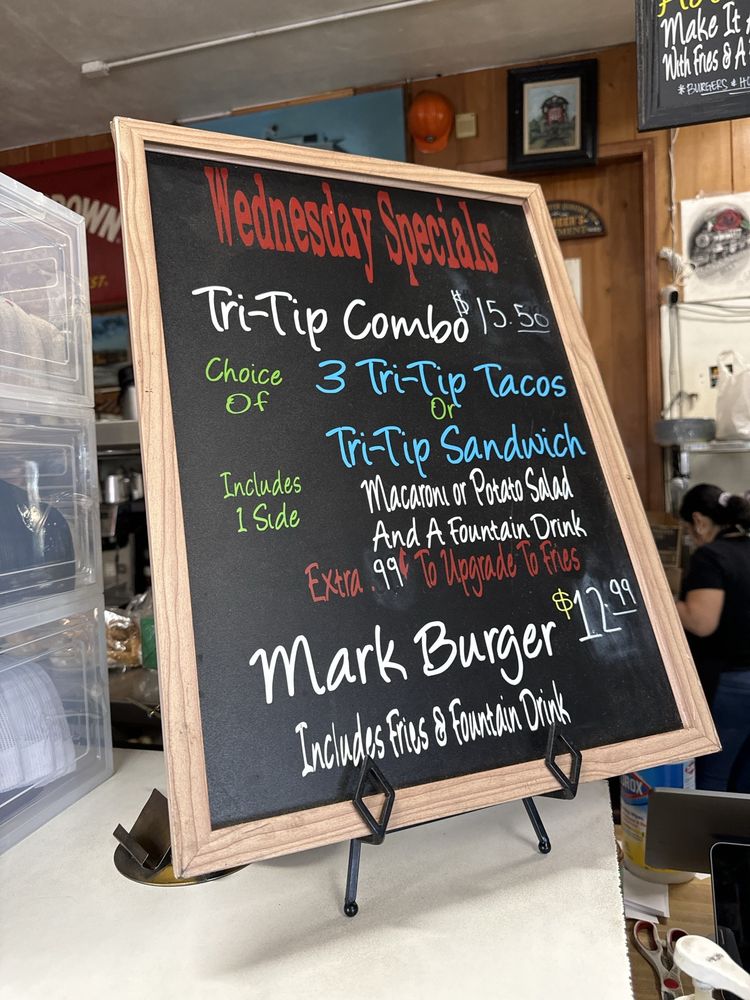 Wednesday Specials
Tri-Tip Combo $15.50
Choice Of
3 Tri-Tip Tacos
Or
Tri-Tip Sandwich
Includes 1 Side
Macaroni or Potato Salad
And A Fountain Drink
Extra .99¢ To Upgrade To Fries
Mark Burger $12.99
Includes Fries & Fountain Drink
Make It A
With Fries & A
*BURGERS & HO
DOWN
ST.